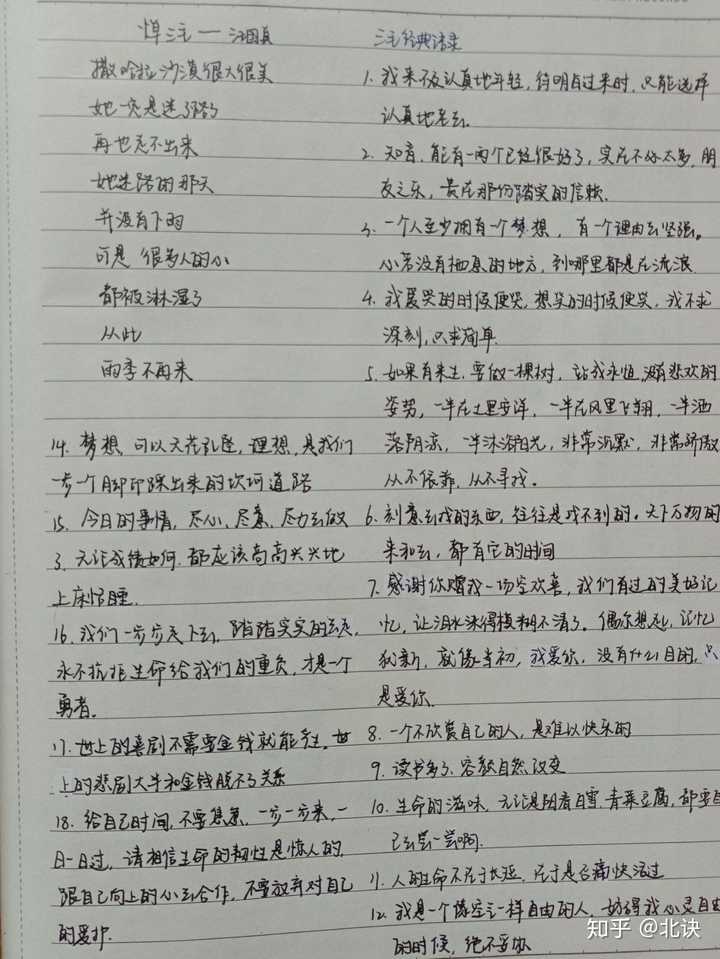 悼三毛——汪国真
撒哈拉沙漠很大很美
她一定是迷了路了
再也走不出来
她迷路的那天
并没有下雨
可是 很多人的心
都被淋湿了
从此
雨季不再来
14. 梦想,可以天花乱坠,理想,是我们
一步一个脚印踩出来的坎坷道路
15. 今日的事情,尽心、尽意、尽力去做
了,无论成绩如何,都应该高高兴兴地
上床恬睡.
16. 我们一步步走下去,踏踏实实的去走,
永不抗拒生命给我们的重负,才是一个
勇者.
17. 世上的喜剧不需要金钱就能产生,世
上的悲剧大半和金钱脱不了关系
18. 给自己时间,不要焦急,一步一步来,一
日一日过,请相信生命的韧性是惊人的,
跟自己向上的心去合作,不要放弃对自己
的爱护.
三毛经典语录
1. 我来不及认真地年轻,待明白过来时,只能选择
认真地老去.
2. 知音,能有一两个已经很好了,实在不必太多,朋
友之乐,贵在那份踏实的信赖.
3. 一个人至少拥有一个梦想,有一个理由去坚强。
心若没有栖息的地方,到哪里都是在流浪
4. 我爱哭的时候便哭,想笑的时候便笑,我不求
深刻,只求简单.
5. 如果有来生,要做一棵树,站成永恒,没有悲欢的
姿势,一半在土里安详,一半在风里飞翔,一半洒
落阴凉,一半沐浴阳光,非常沉默,非常骄傲
从不依靠,从不寻找.
6. 刻意去找的东西,往往是找不到的。天下万物的
来和去,都有它的时间
7. 感谢你赠我一场空欢喜,我们有过的美好记
忆,让泪水染得模糊不清了。偶尔想起,记忆
犹新,就像当初,我爱你,没有什么目的,只
是爱你.
8. 一个不欣赏自己的人,是难以快乐的
9. 读书多了,容颜自然改变
10. 生命的滋味,无论是阳春白雪,青菜豆腐,都要自
己去尝一尝啊.
11. 人的生命不在于长短,在于是否痛快活过
12. 我是一个像空气一样自由的人,妨碍我心灵自由
的时候,绝不妥协
知乎 @北诀